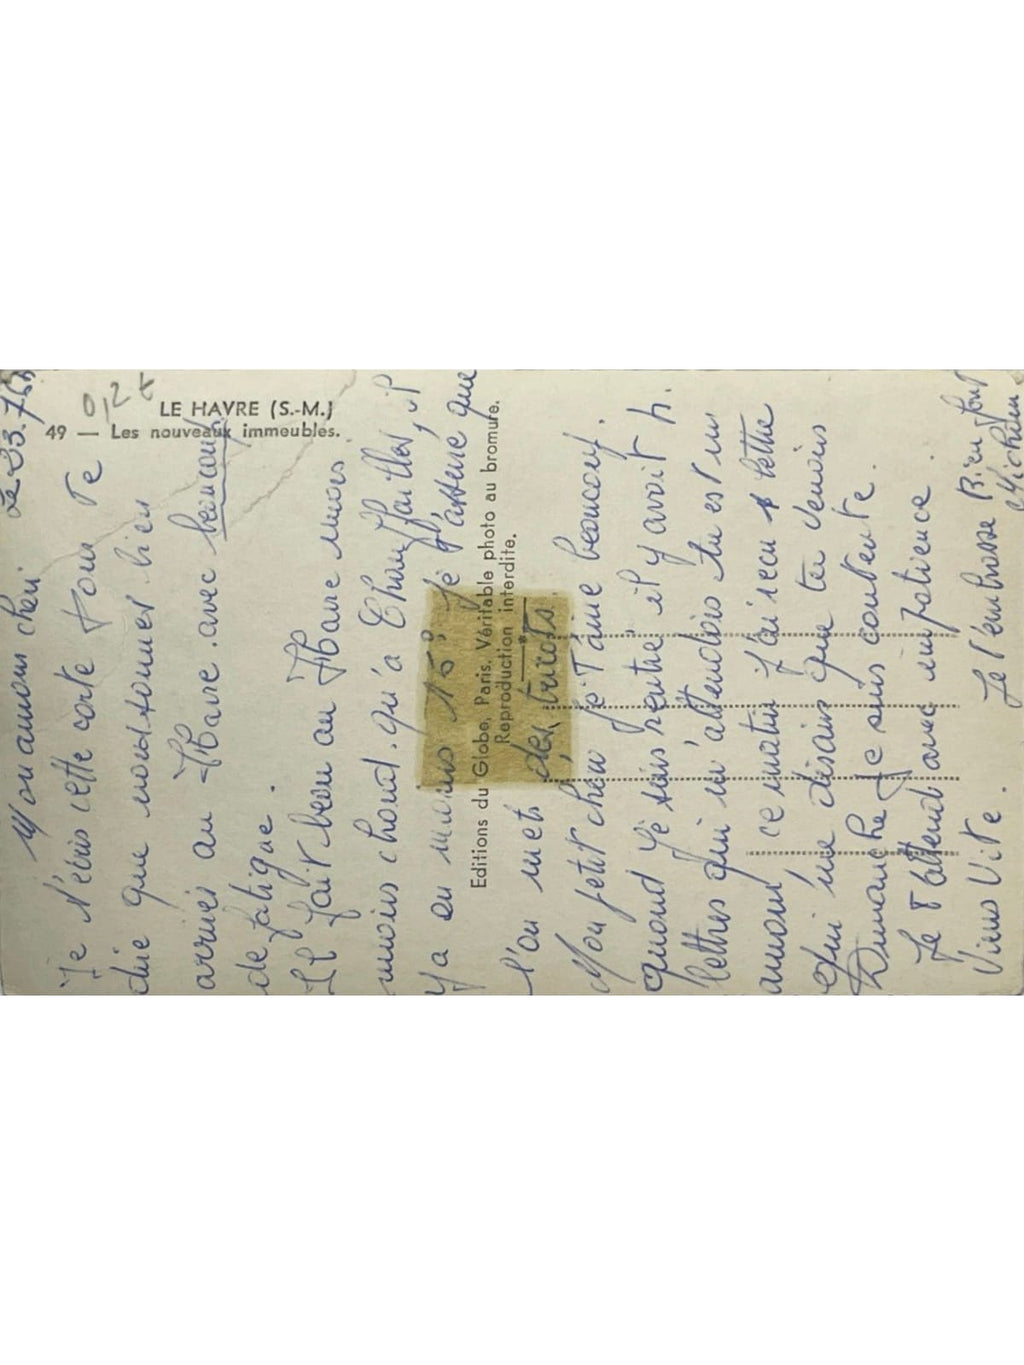 LE HAVRE (S.-M.)
49 — Les nouveaux immeubles.
0,2 t
Le 23.7
Mon amour chéri
Je t'écris cette carte pour te
dire que nous sommes bien
arrivés au Havre. avec beaucoup
de fatigue.
Il fait beau au Havre mois
moins chaud. qu'a il
Y a en moins 15° je que
l'on met des tricots.
Mon petit chéri je T'aime beaucoup.
quand je suis rentré il y avoit
lettres qui m'attendois tu est un
amour ce matin j'ai recu lettre
Qui me disais que tu venois
Dimanche Je suis contente.
Je t'attend avec impatience
Viens Vite. Je t'embrasse Bien fort
Editions du Globe, Paris. Véritable photo au bromure.
Reproduction interdite.